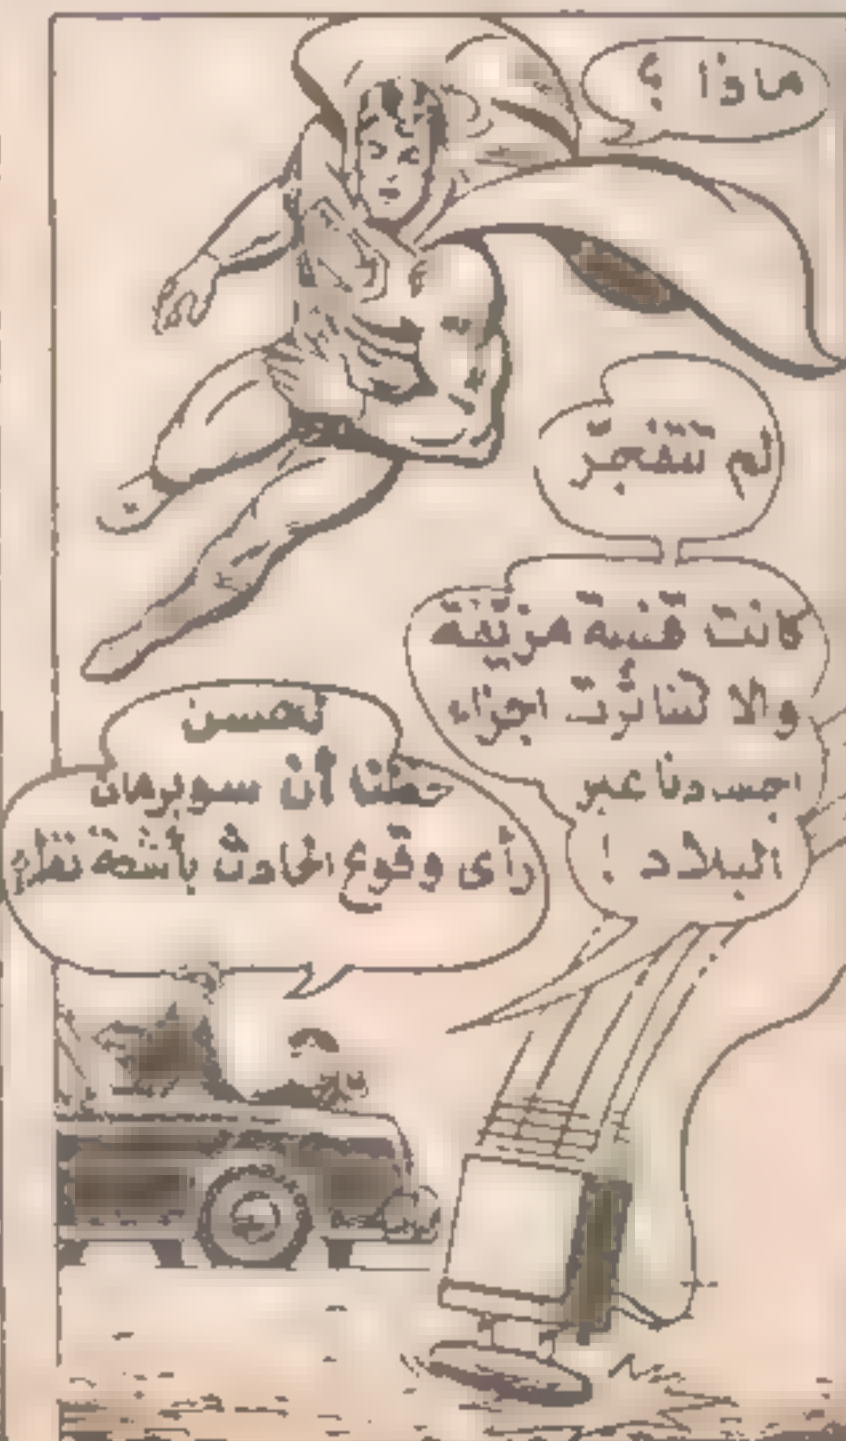 ماذا ؟
لم تنفجر
كانت قنبلة مزيّفة
والا لتناثرت اجزاء
اجسادنا عبر
البلاد !
لحسن
حظنا أن سوبرمان
رأى وقوع الحادث بأشعة نظره